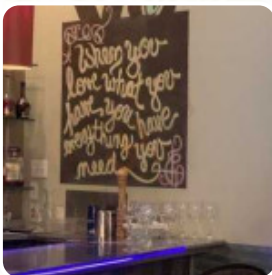 When you
love what you
have, you have
everything you
need